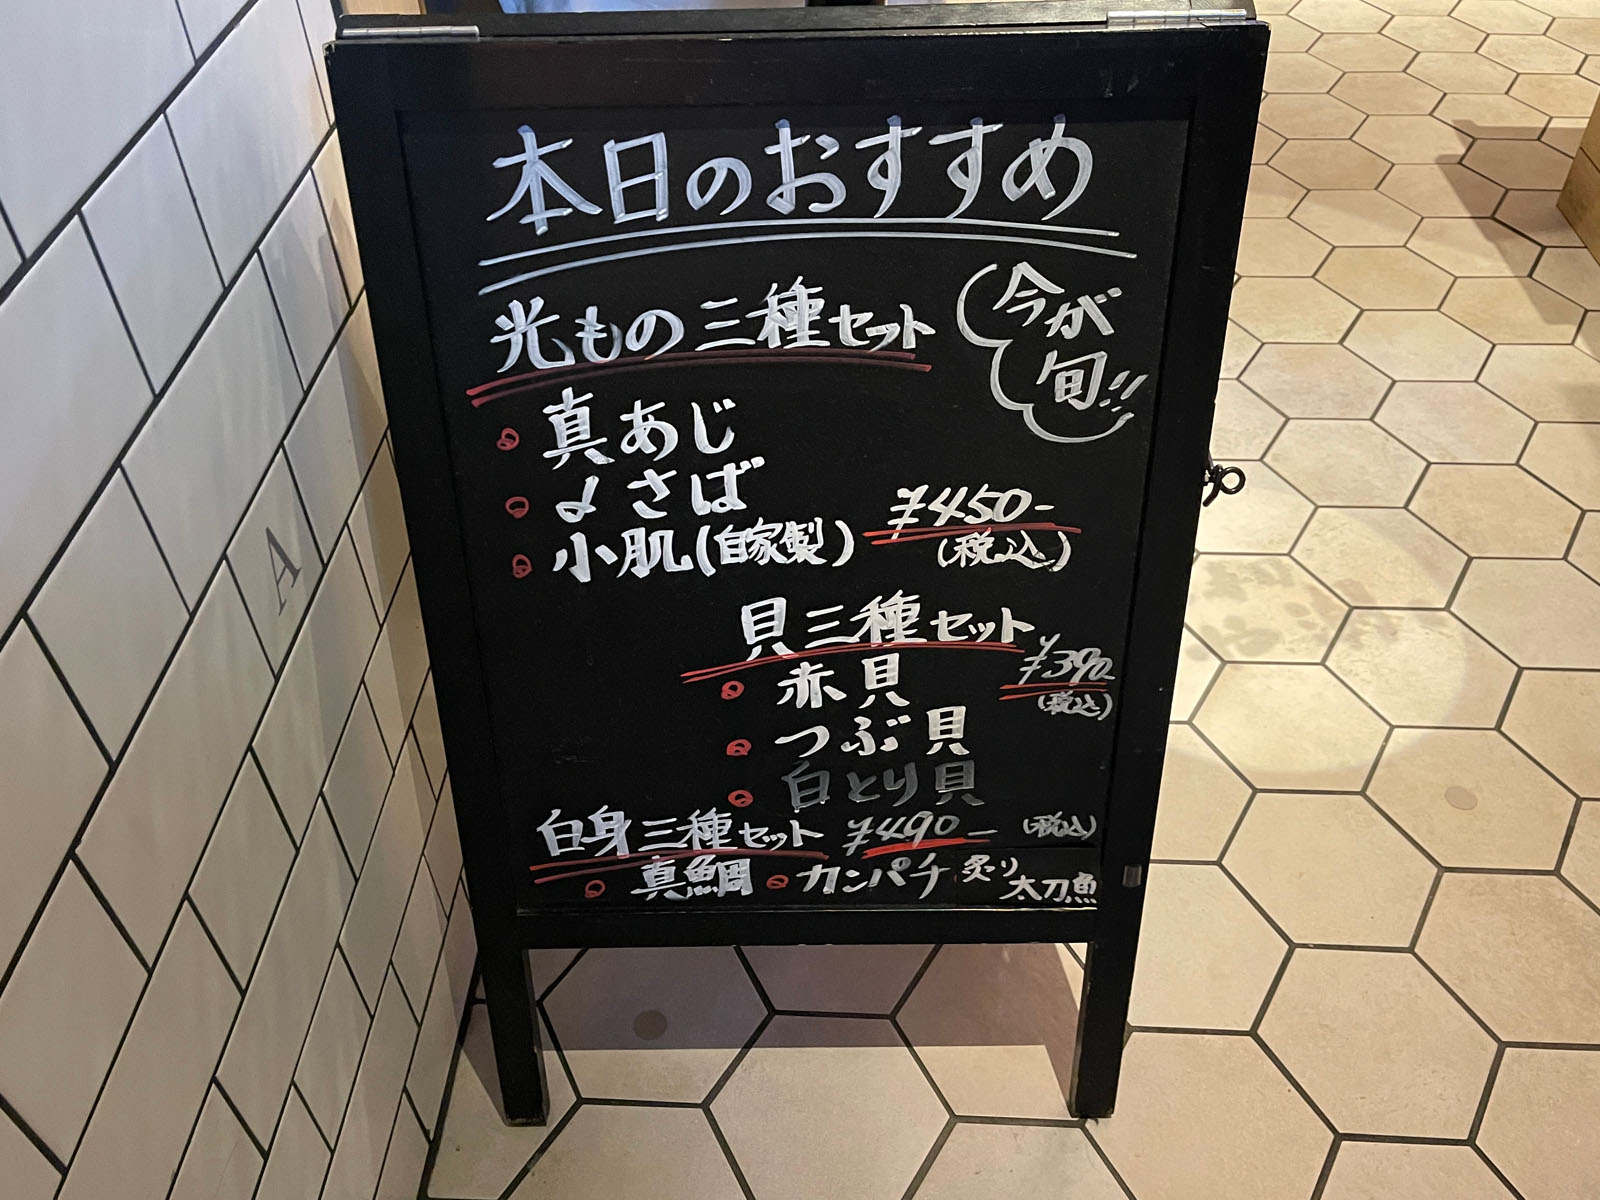 本日のおすすめ
光もの三種セット
今が
旬!!
真あじ
〆さば
小肌(自家製)
¥450-
(税込)
貝三種セット
¥390
(税込)
赤貝
つぶ貝
白とり貝
白身三種セット ¥490- (税込)
真鯛 カンパチ 炙り
太刀魚
A